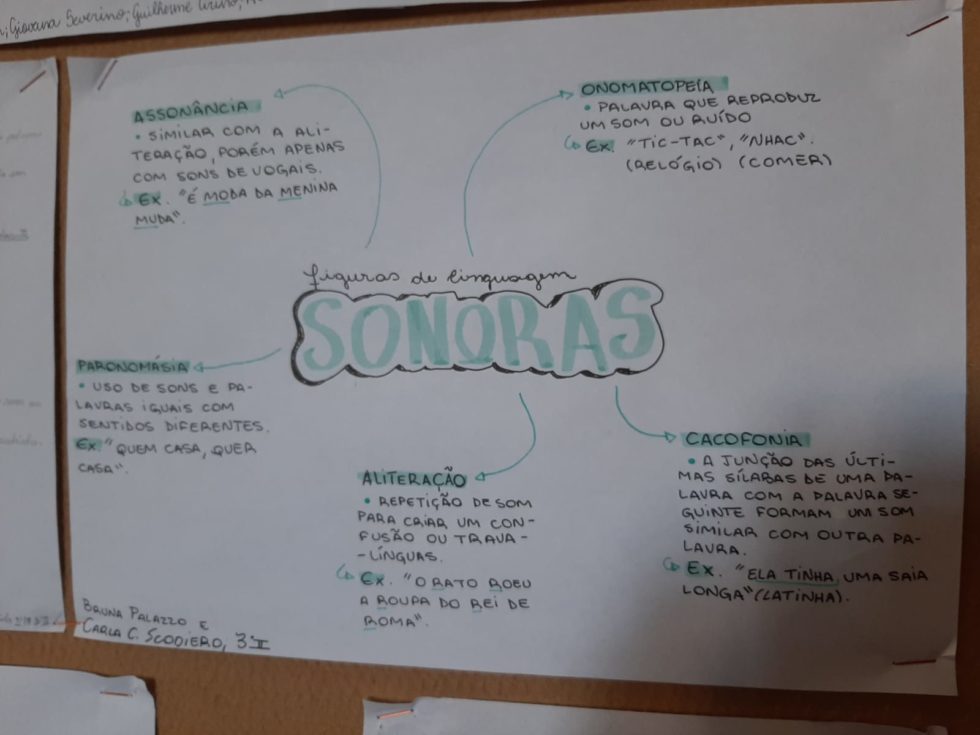 Giovana Severino; Guilherme
ASSONÂNCIA
• SIMILAR COM A ALI-
TERAÇÃO, PORÉM APENAS
COM SONS DE VOGAIS.
Ex. "É MODA DA MENINA
MUDA".
ONOMATOPEÍA
• PALAVRA QUE REPRODUZ
UM SOM OU RUÍDO
Ex. "TIC-TAC", "NHAC".
(RELÓGIO) (COMER)
figuras de linguagem
SONORAS
PARONOMÁSIA
• USO DE SONS E PA-
LAVRAS IGUAIS COM
SENTIDOS DIFERENTES.
Ex. "QUEM CASA, QUER
CASA".
ALITERAÇÃO
• REPETIÇÃO DE SOM
PARA CRIAR UM CON-
FUSÃO OU TRAVA-
-LÍNGUAS.
Ex. "O RATO ROEU
A ROUPA DO REI DE
ROMA".
CACOFONIA
• A JUNÇÃO DAS ÚLTI-
MAS SÍLABAS DE UMA PA-
LAVRA COM A PALAVRA SE-
GUINTE FORMAM UM SOM
SIMILAR COM OUTRA PA-
LAVRA.
Ex. "ELA TINHA, UMA SAIA
LONGA" (LATINHA).
BRUNA PALAZZO E
CARLA C. SCODIERO, 3ºI